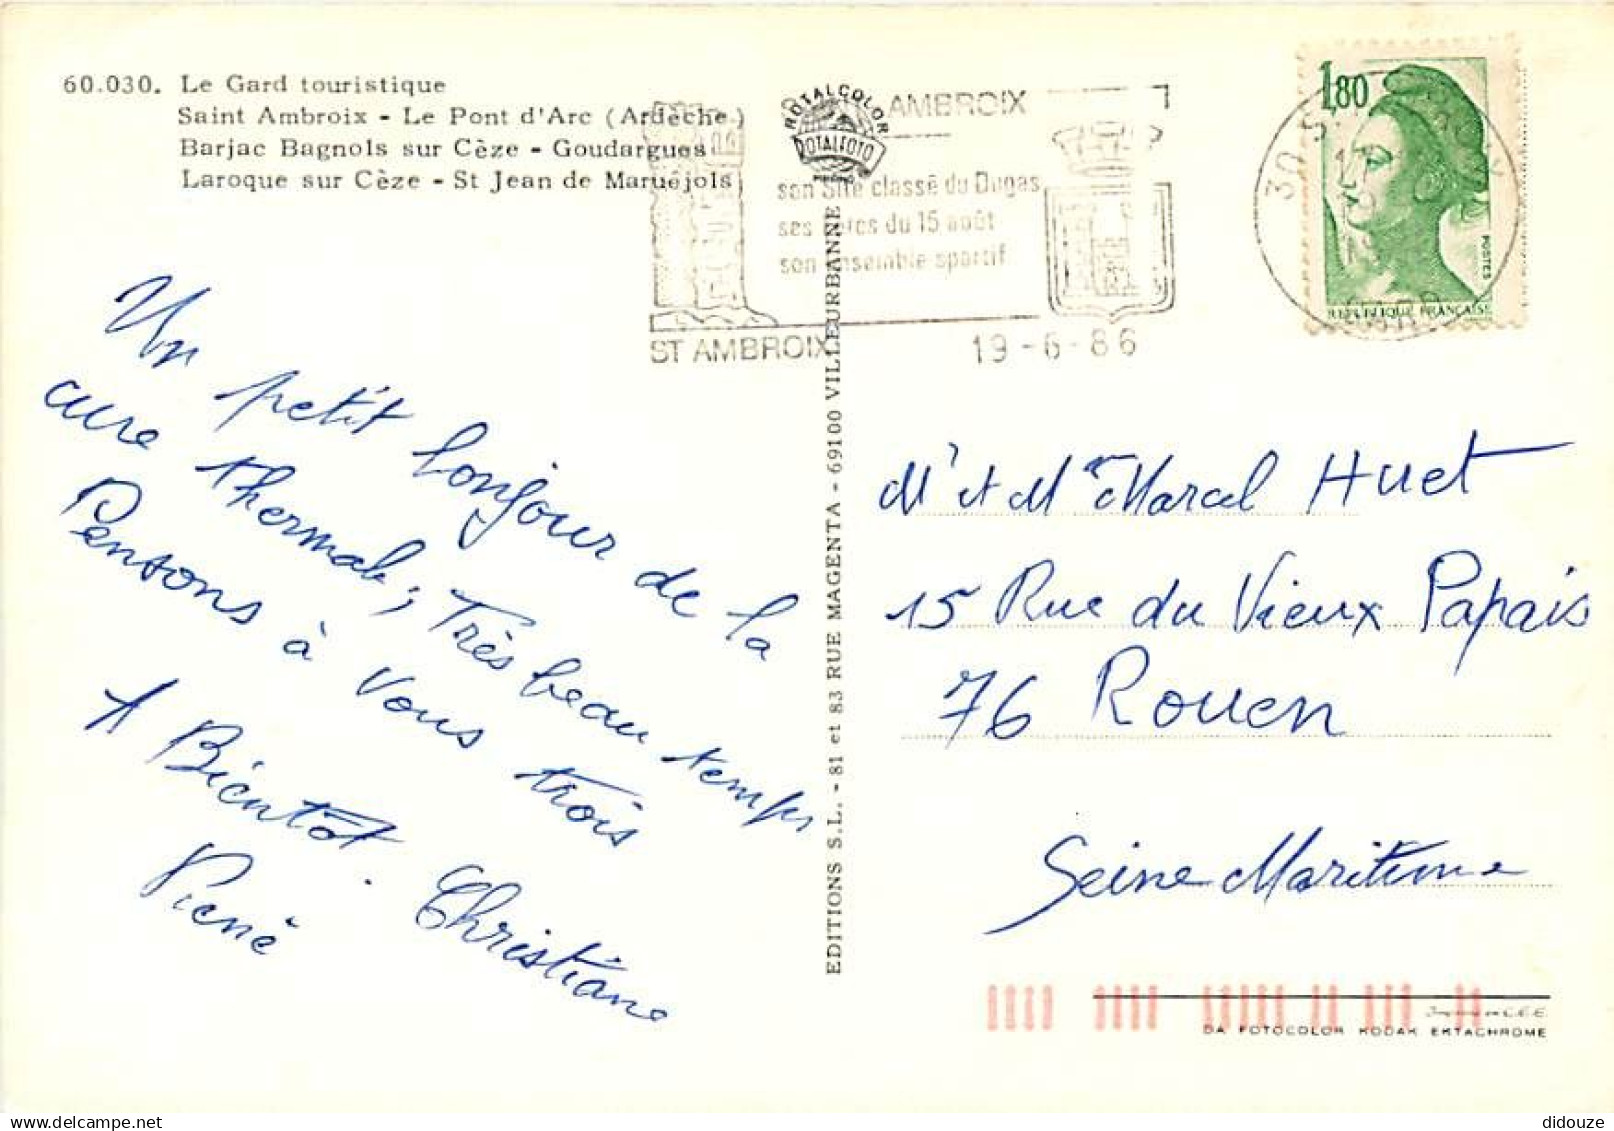 60.030. Le Gard touristique
Saint Ambroix - Le Pont d'Arc (Ardèche)
Barjac Bagnols sur Cèze - Goudargues
Laroque sur Cèze - St Jean de Maruéjols
ROTALCOLOR
ROTALFOTO
AMBROIX
son Site classé du Dugas
ses fêtes du 15 août
son ensemble sportif
ST AMBROIX
19-6-86
1,80
POSTES
REPUBLIQUE FRANÇAISE
30
GARD
Un petit bonjour de la
cure thermale, Très beau temps
Pensons à vous trois
A Bientôt.
Christiane
EDITIONS S.L. - 81 et 83 RUE MAGENTA - 69100 VILLEURBANNE
Mr et Mme Marcel Huet
15 Rue du Vieux Papais
76 Rouen
Seine Maritime
DA FOTOCOLOR KODAK EKTACHROME
didouze